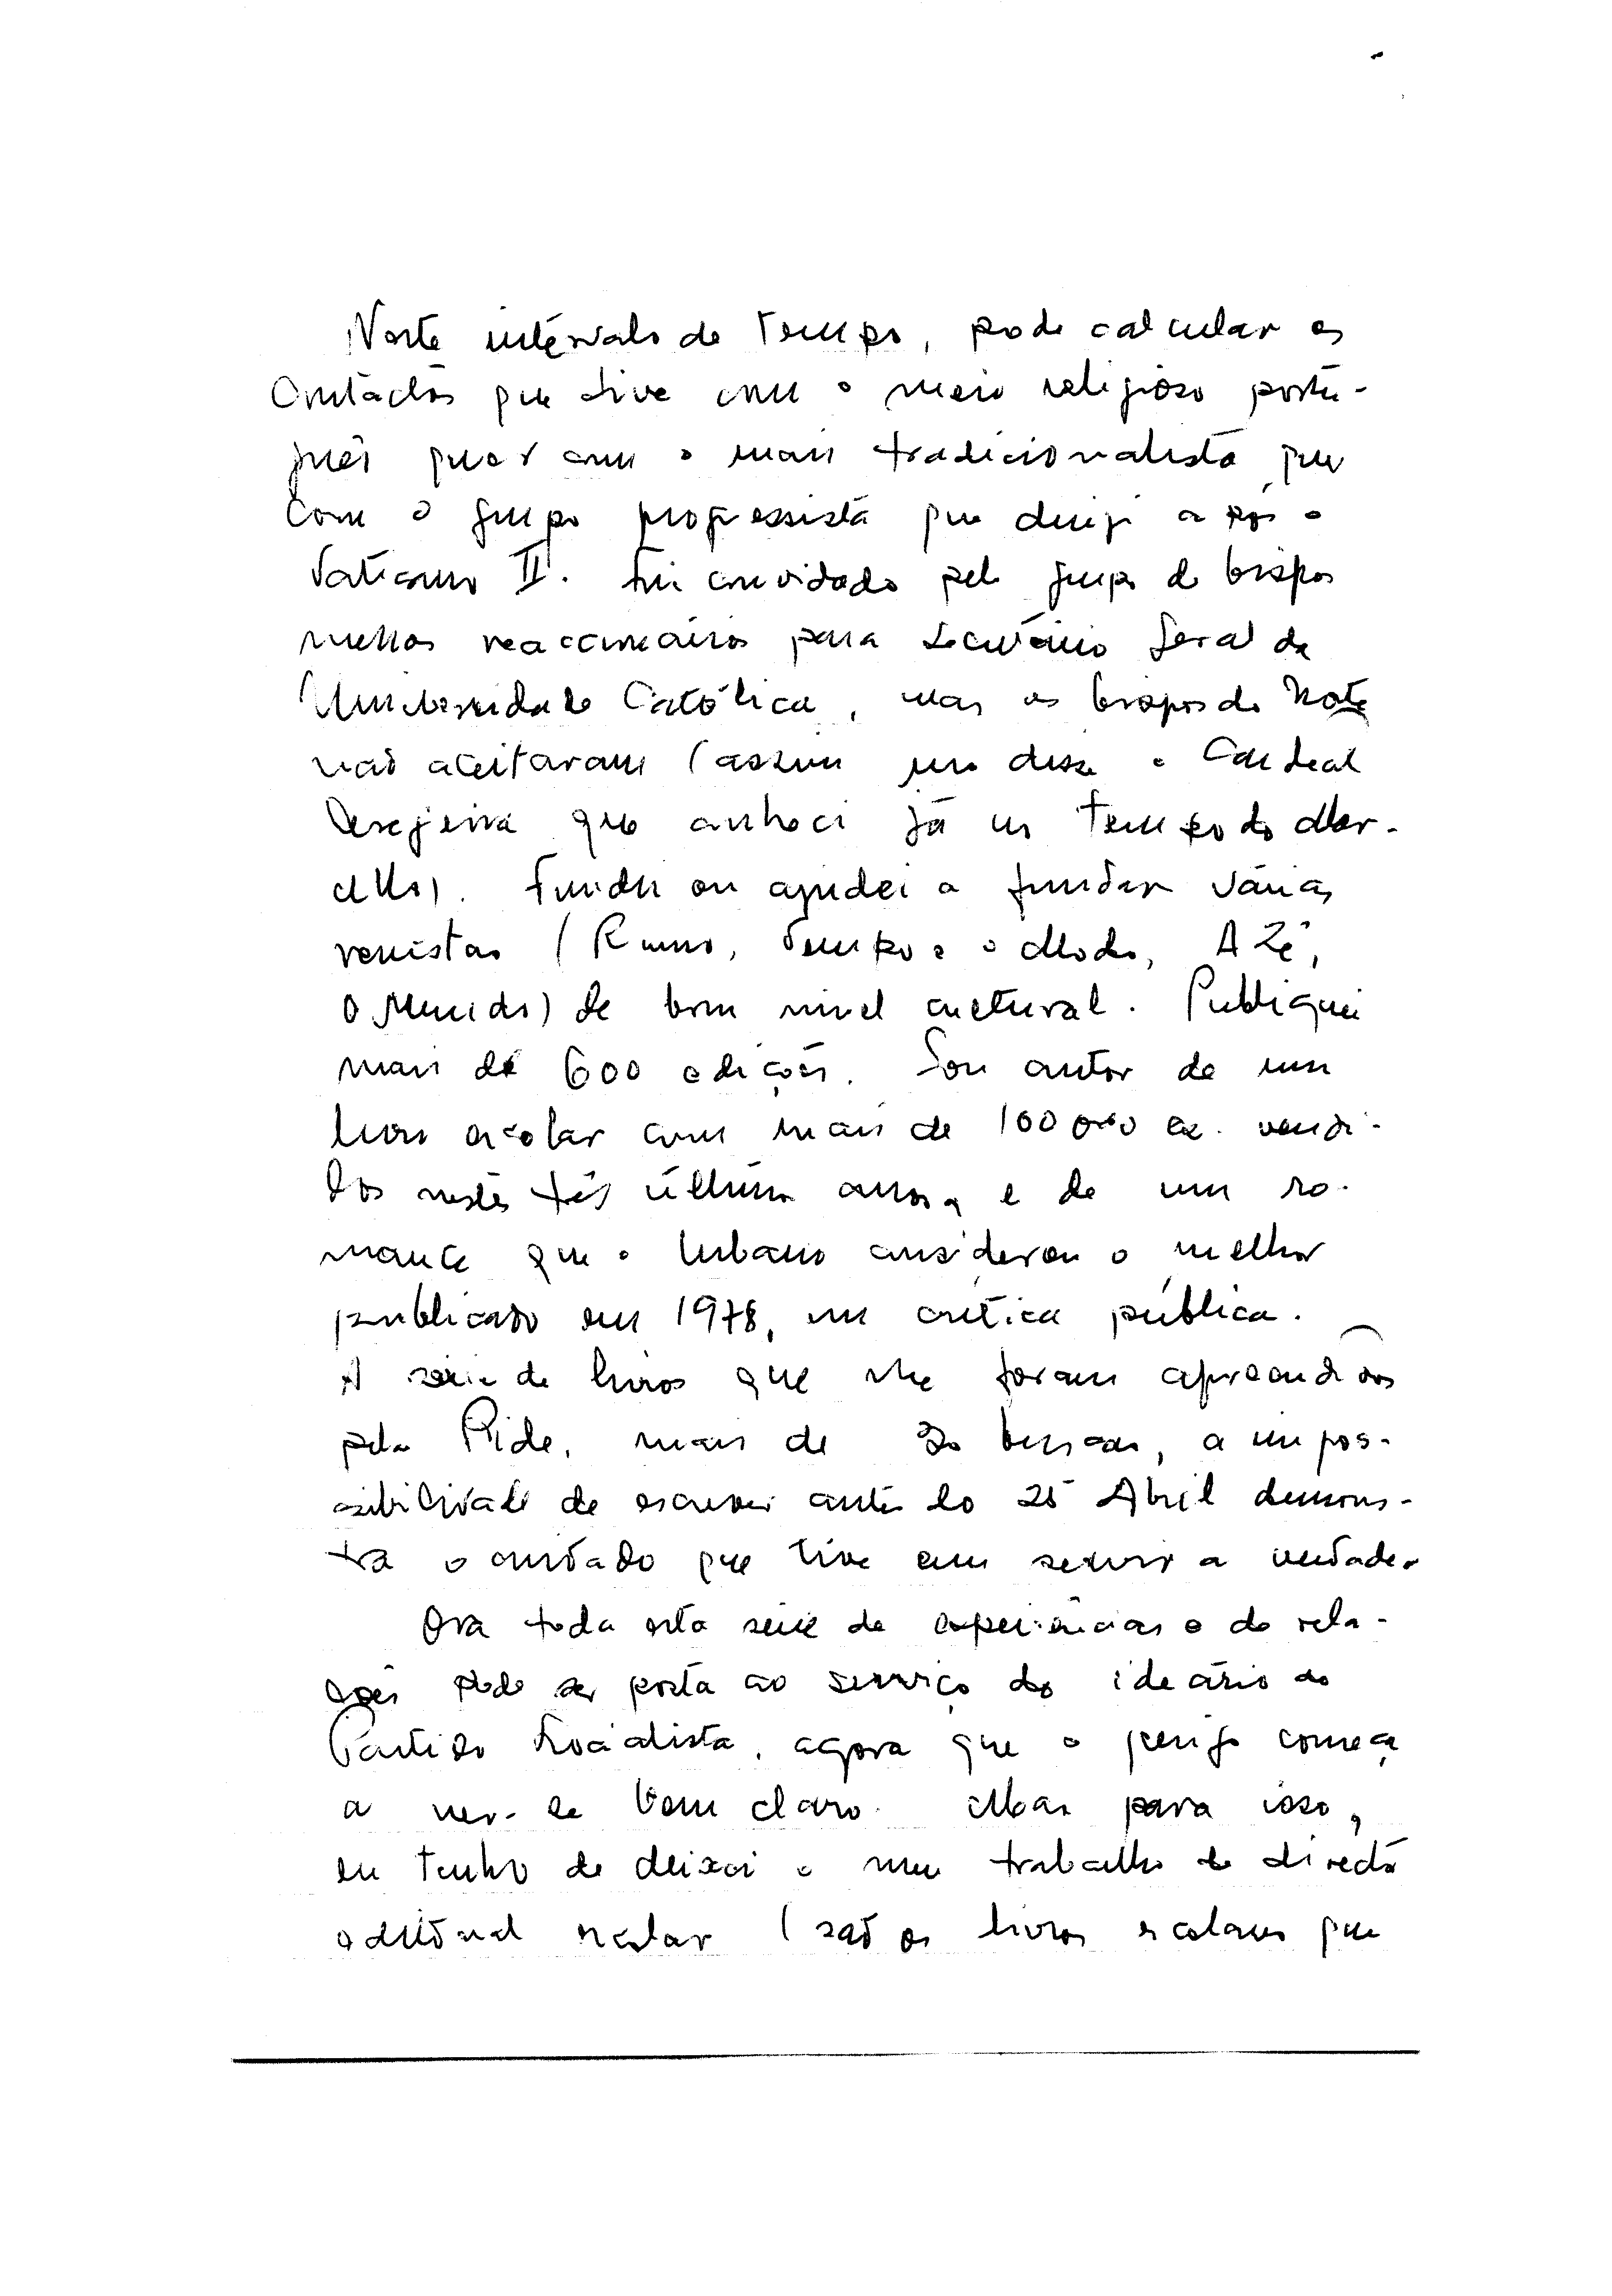 Neste intervalo de tempo, pode calcular os
contactos que tive com o meio religioso portu-
guês quer com o mais tradicionalista, quer
com o grupo progressista que dirigi após o
Vaticano II. Fui convidado pelo grupo de bispos
menos reaccionários para secretário geral da
Universidade Católica, mas os bispos do Norte
não aceitaram (assim me disse o Cardeal
Cerejeira que conheci já no tempo do Mar-
cello). Fundei ou ajudei a fundar várias
revistas (Rumo, Tempo e o Modo, A Zé,
O Mundo) de bom nível cultural. Publiquei
mais de 600 edições. Sou autor de um
livro escolar com mais de 100 000 ex. vendi-
dos nestes três últimos anos, e de um ro-
mance que o Urbano considerou o melhor
publicado em 1978, em crítica pública.
A série de livros que me foram apreendidos
pela Pide, mais de 30 buscas, a impos-
sibilidade de escrever antes do 25 Abril demons-
tra o cuidado que tive em servir a verdade.
Ora toda esta série de experiências e de rela-
ções pode ser posta ao serviço do ideário do
Partido Socialista, agora que o perigo começa
a ver-se bem claro. Mas para isso,
eu tenho de deixar o meu trabalho de director
editorial escolar (são os livros escolares que